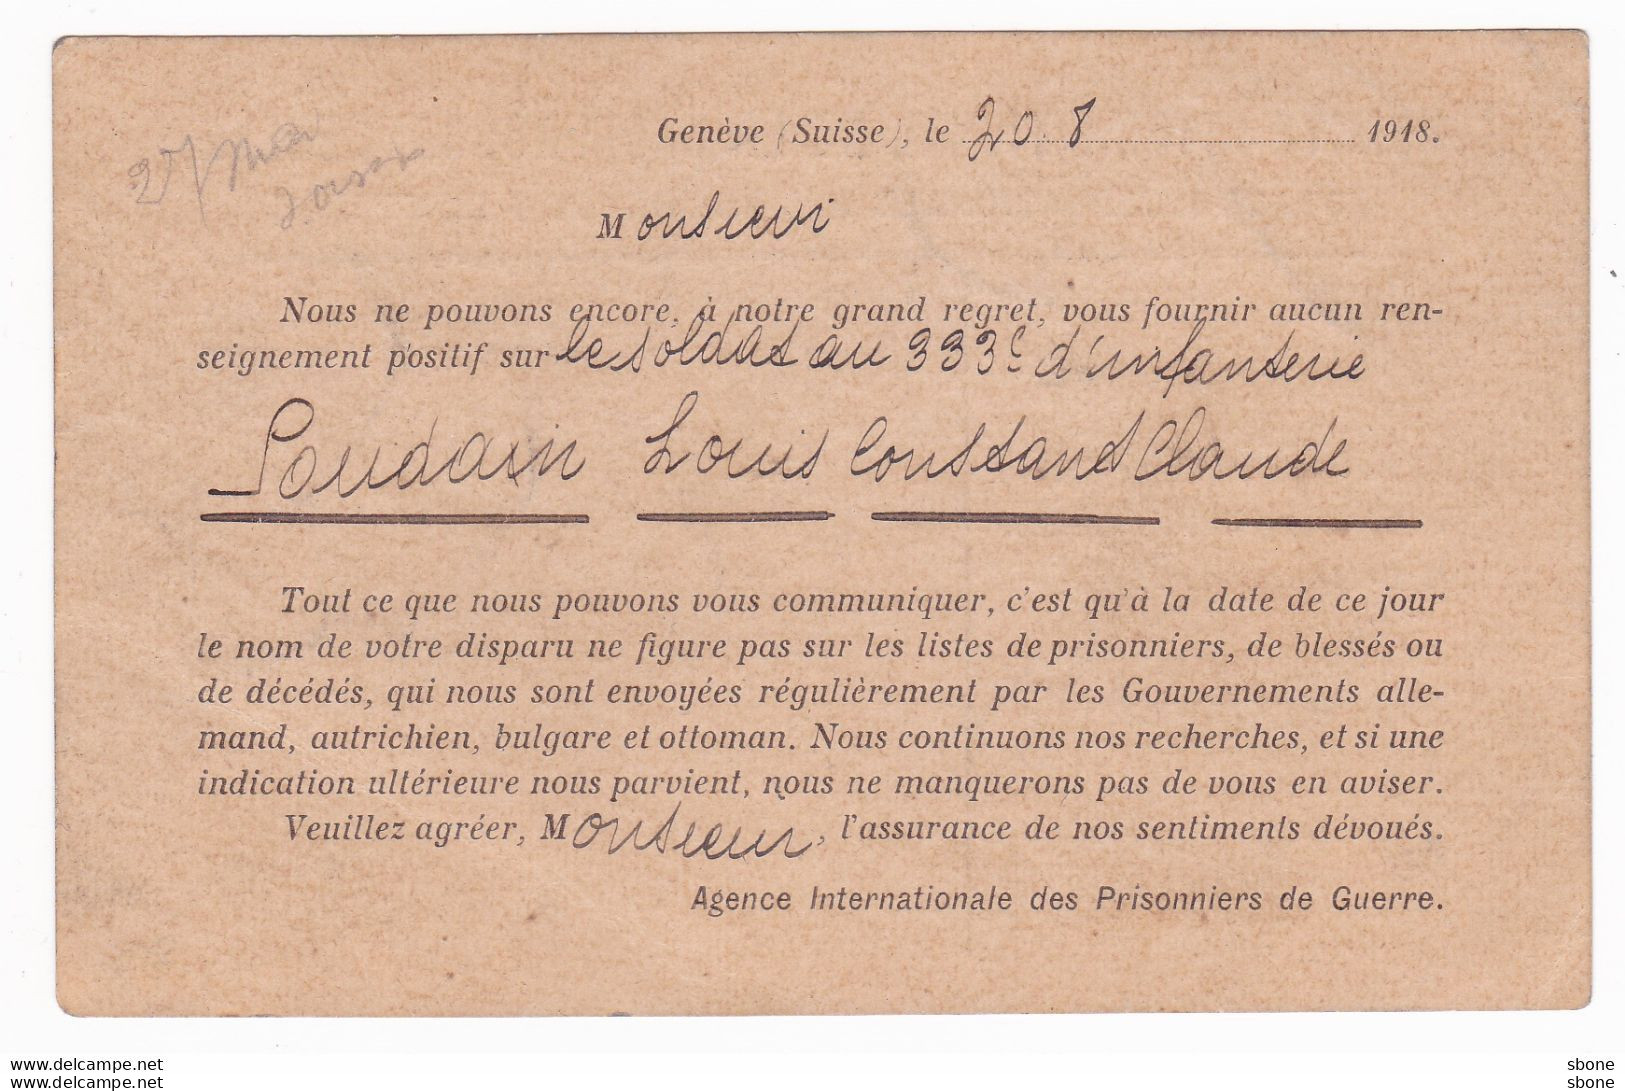 Genève (Suisse), le 20.8 1918.
Monsieur
Nous ne pouvons encore, à notre grand regret, vous fournir aucun ren-
seignement positif sur le soldat au 333e d'infanterie
Soudain Louis Constant Claude
Tout ce que nous pouvons vous communiquer, c'est qu'à la date de ce jour
le nom de votre disparu ne figure pas sur les listes de prisonniers, de blessés ou
de décédés, qui nous sont envoyées régulièrement par les Gouvernements alle-
mand, autrichien, bulgare et ottoman. Nous continuons nos recherches, et si une
indication ultérieure nous parvient, nous ne manquerons pas de vous en aviser.
Veuillez agréer, Monsieur, l'assurance de nos sentiments dévoués.
Agence Internationale des Prisonniers de Guerre.
www.delcampe.net
sbone
www.delcampe.net
sbone